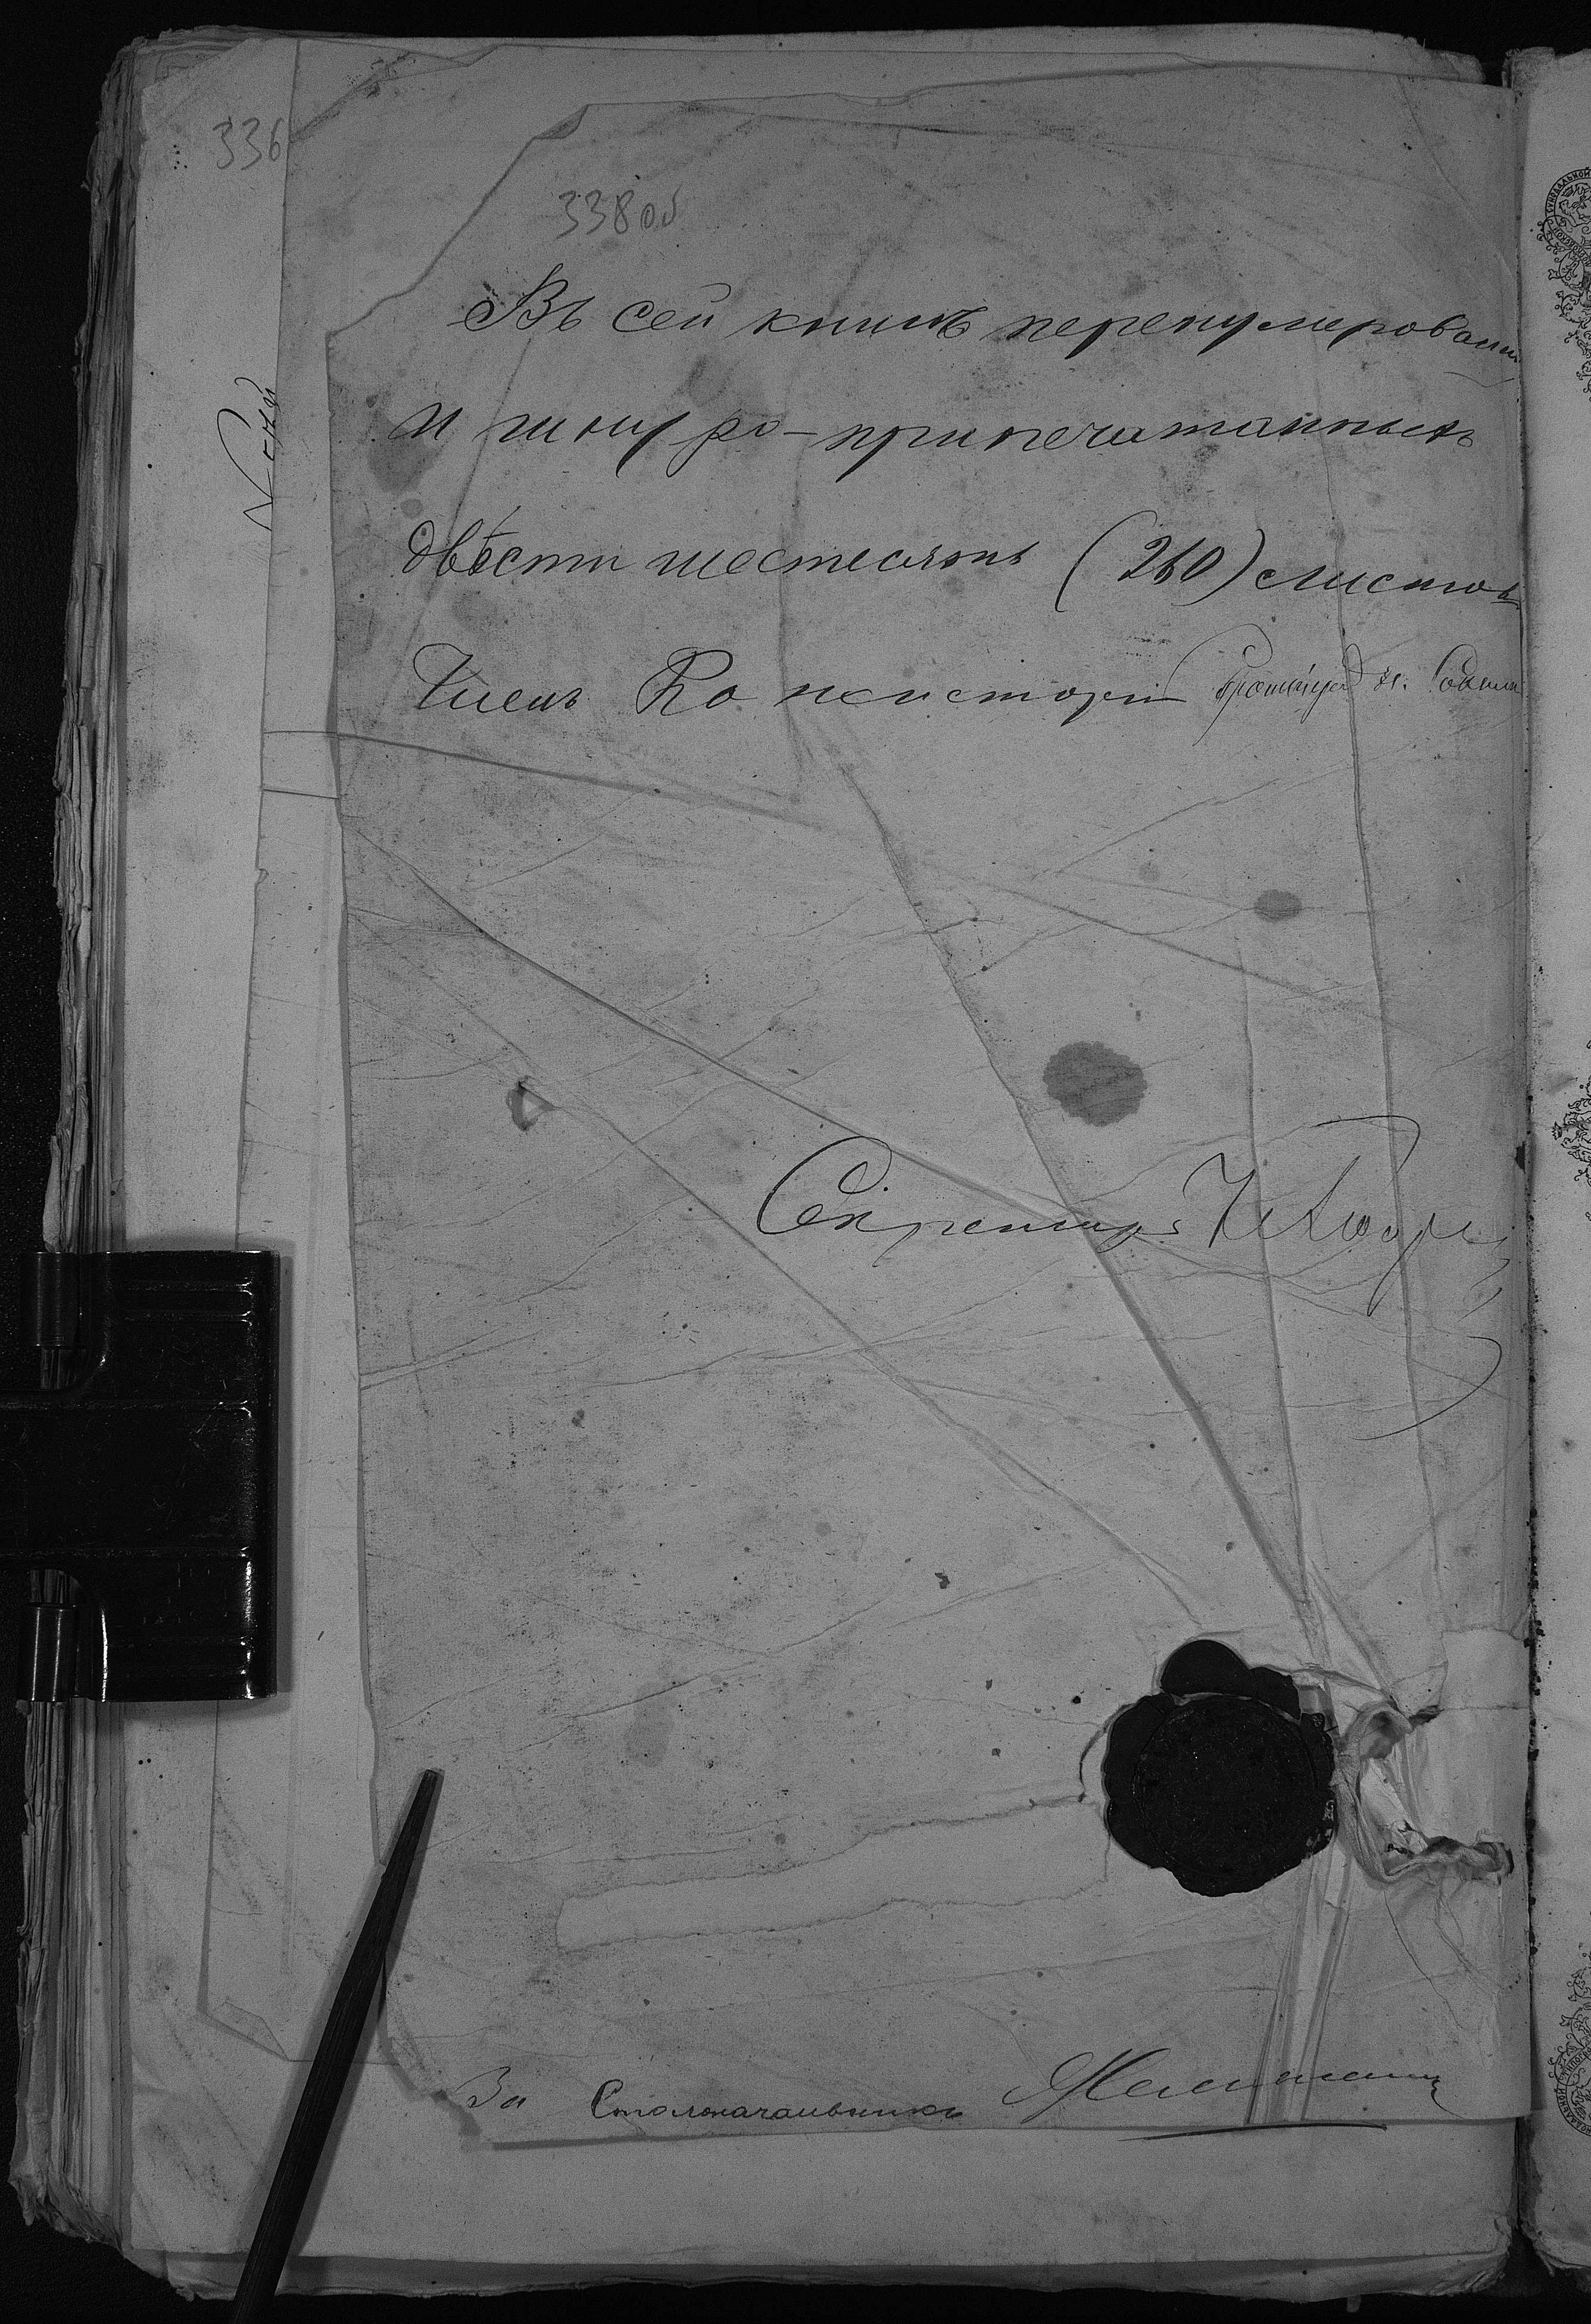 336
338 об
Въ сей книгѣ перенумерован
и шнуро-припечатанныхъ
двѣсти шестьдесятъ (260) листов
Членъ Консисторіи Протоіерей
Секретарь
За Столоначальника